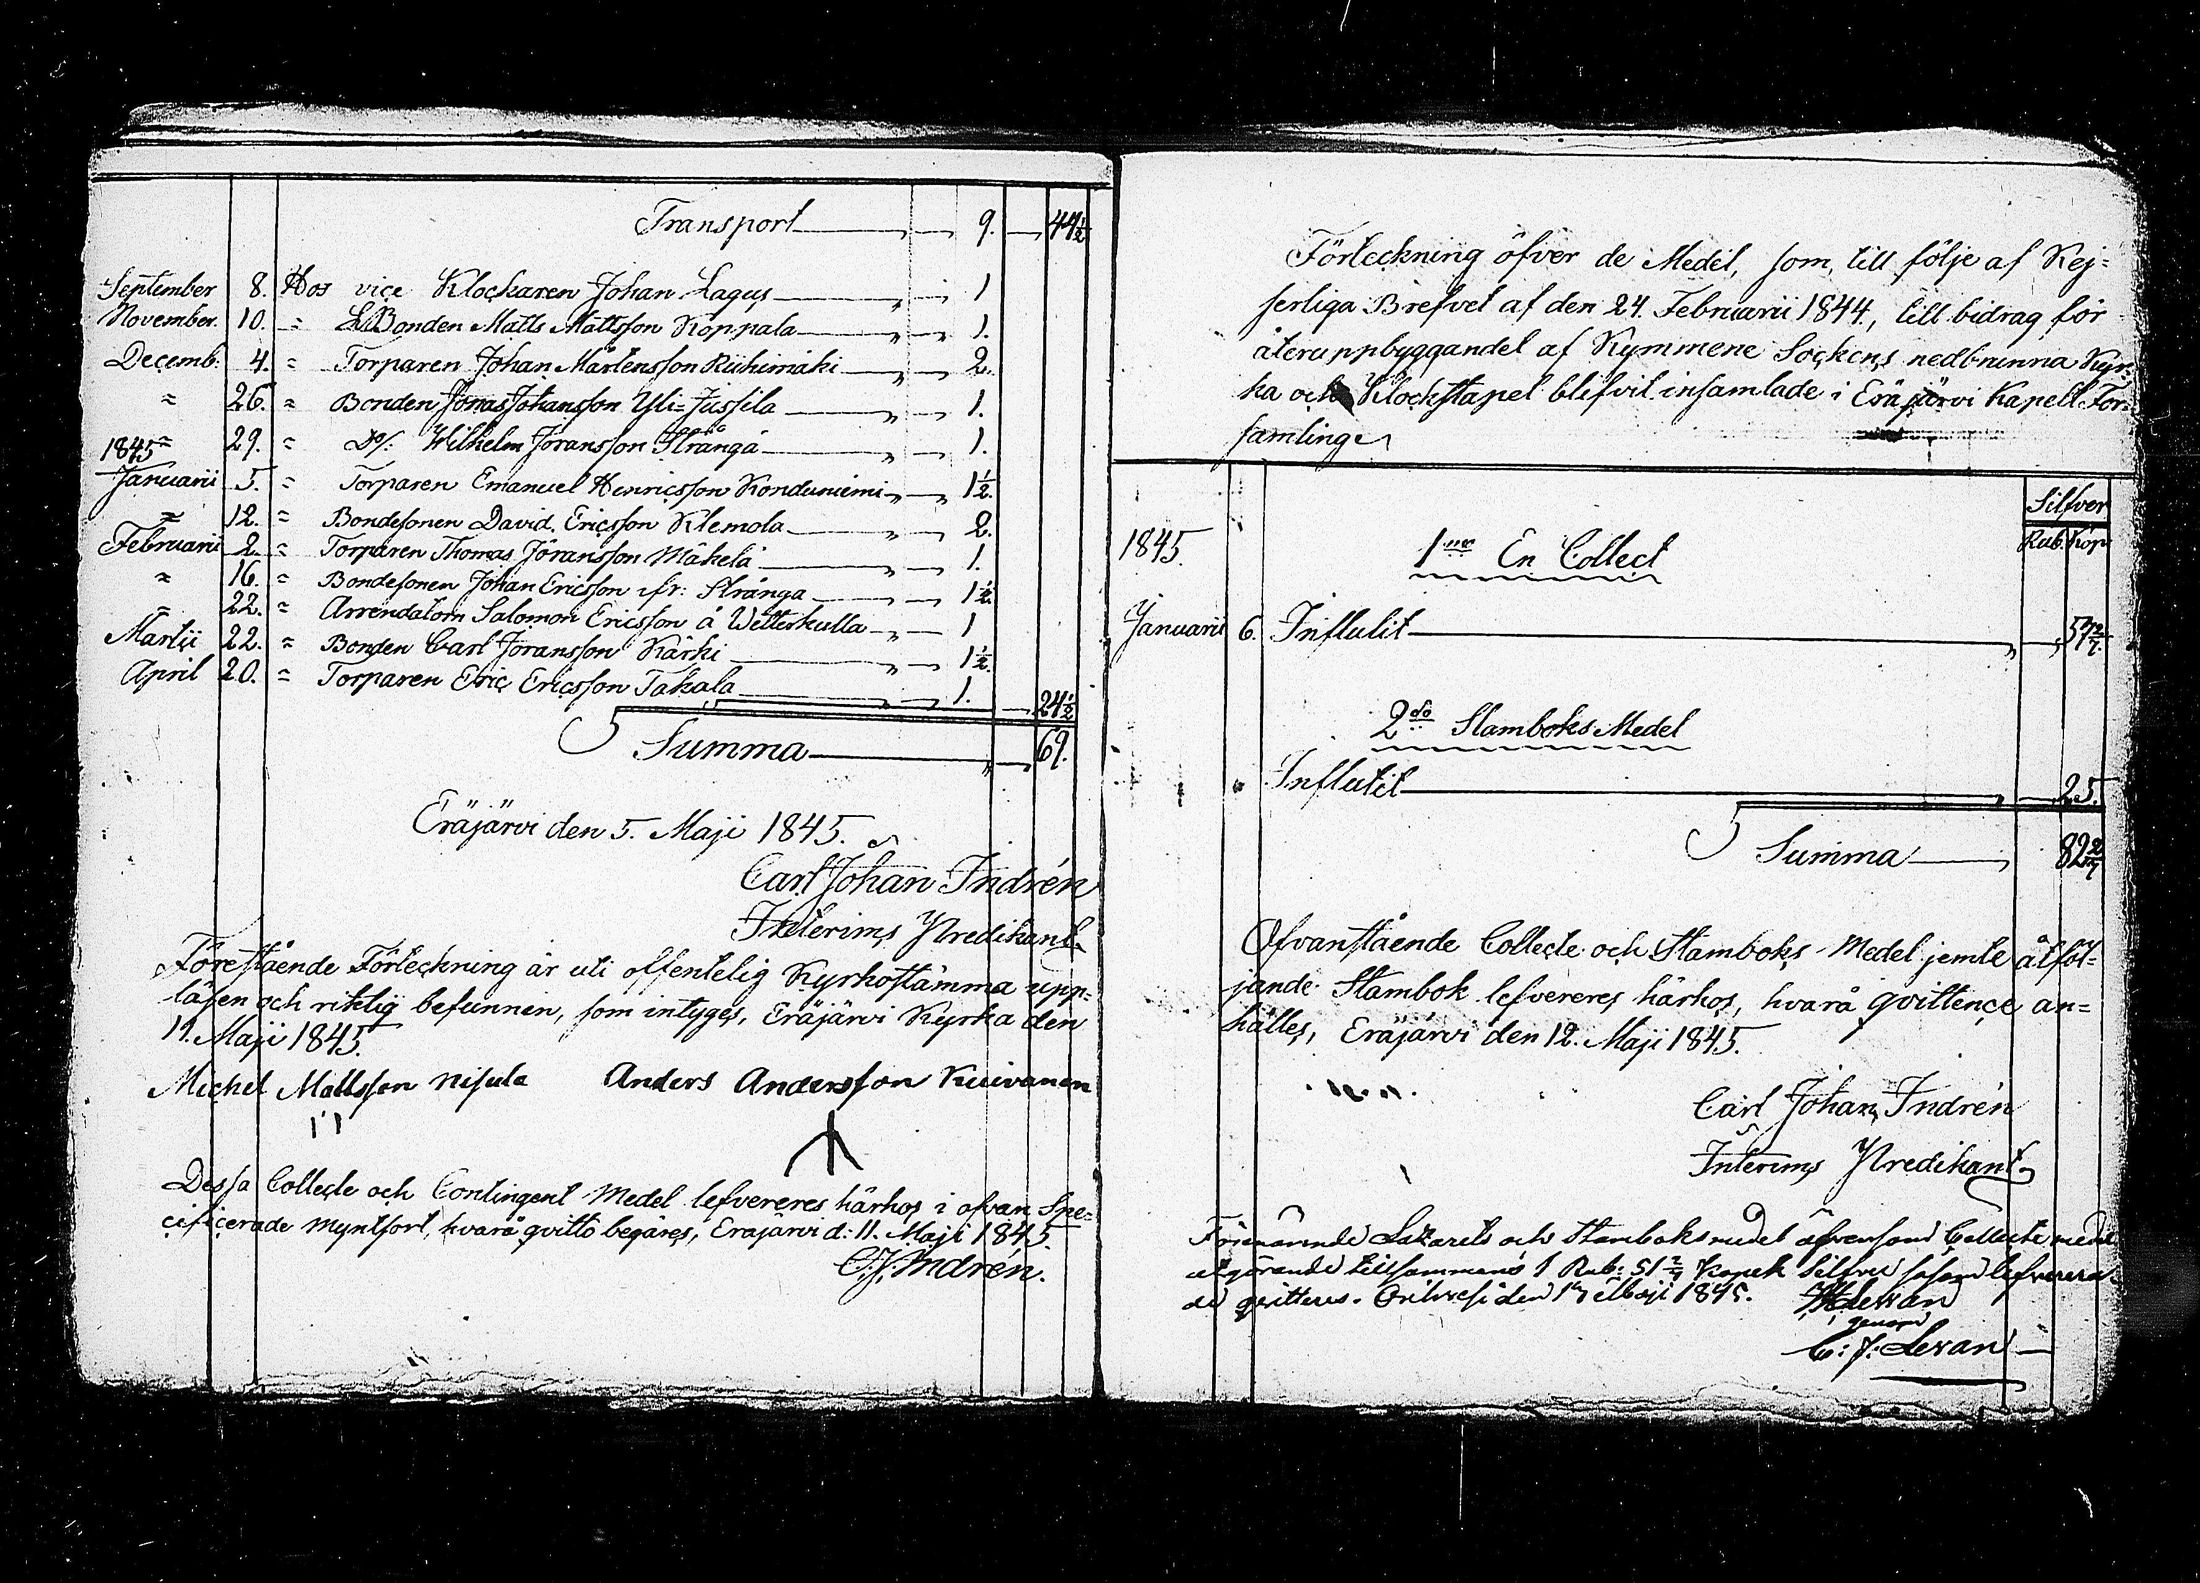 Transport 9. 44½
September 8. Hos vice Klockaren Johan Lagus 1
November. 10. = Bonden Matts Mattsson Koppala 1.
Decemb. 4. = Torparen Johan Mårtensson Riihimäki 2.
" 26. = Bonden Jonas Johansson Yli=Jussila 1.
" 29. = Do/: Wilhelm Jöransson Strånga 1.
1845
Januarii 5. = Torparen Emanuel Henricsson Konduniemi 1½.
" 12. = Bondesonen David Ericsson Klemola 2.
Februarii 2. = Torparen Thomas Jöransson Mäkelä 1.
" 16. = Bondesonen Johan Ericsson fr: Strånga 1½.
" 22. = Arrendatorn Salomon Ericsson å Wetterkulla 1
Martii 22. = Bonden Carl Jöransson Kärki 1½.
April 20. = Torparen Eric Ericsson Takala 1. 24½
Summa 69.
Eräjärvi den 5. Maji 1845.
Carl Johan Indrén
Interims Predikant
Förestående Förteckning är uti offentelig Kyrkostämma upp=
läsen och riktig befunnen, som intyges, Eräjärvi Kyrka den
11. Maji 1845.
Michel Mattsson Nisula Anders Andersson Kuivanen
Dessa Collecte och Contingent Medel lefvereres härhos i ofvan Spe=
cificerade myntsort, hvarå qvitto begäres, Eräjärvi d: 11. Maji 1845.
C. J. Indrén.
Förteckning öfver de Medel, som, till följe af Kej=
serliga Brefvet af den 24. Februarii 1844, till bidrag för
återuppbyggandet af Kymmene Sockens nedbrunna Kyr=
ka och Klockstapel blifvit insamlade i Eräjärvi Kapell För=
samling
Silfver
Rub. Kop.
1845. 1mo En Collect
Januarii 6. Influtit 57 2/7.
2do Stamboks Medel
Influtit 25.
Summa 82 2/7
Ofvanstående Collecte och Stamboks Medel jemte åtföl=
jande Stambok lefvereres härhos, hvarå qvittence an=
hålles, Eräjärvi den 12. Maji 1845.
Carl Johan Indrén
Interims Predikant
Lazaretts och Stamboksmedel äfvensom Collecte medel
utgörande tillsammans 1 Rub: 51 2/7 Kopek Silfver såsom lefverera=
de qvitteres. Orihvesi den 17 Maji 1845.
Levan
genom
C: J: Levan